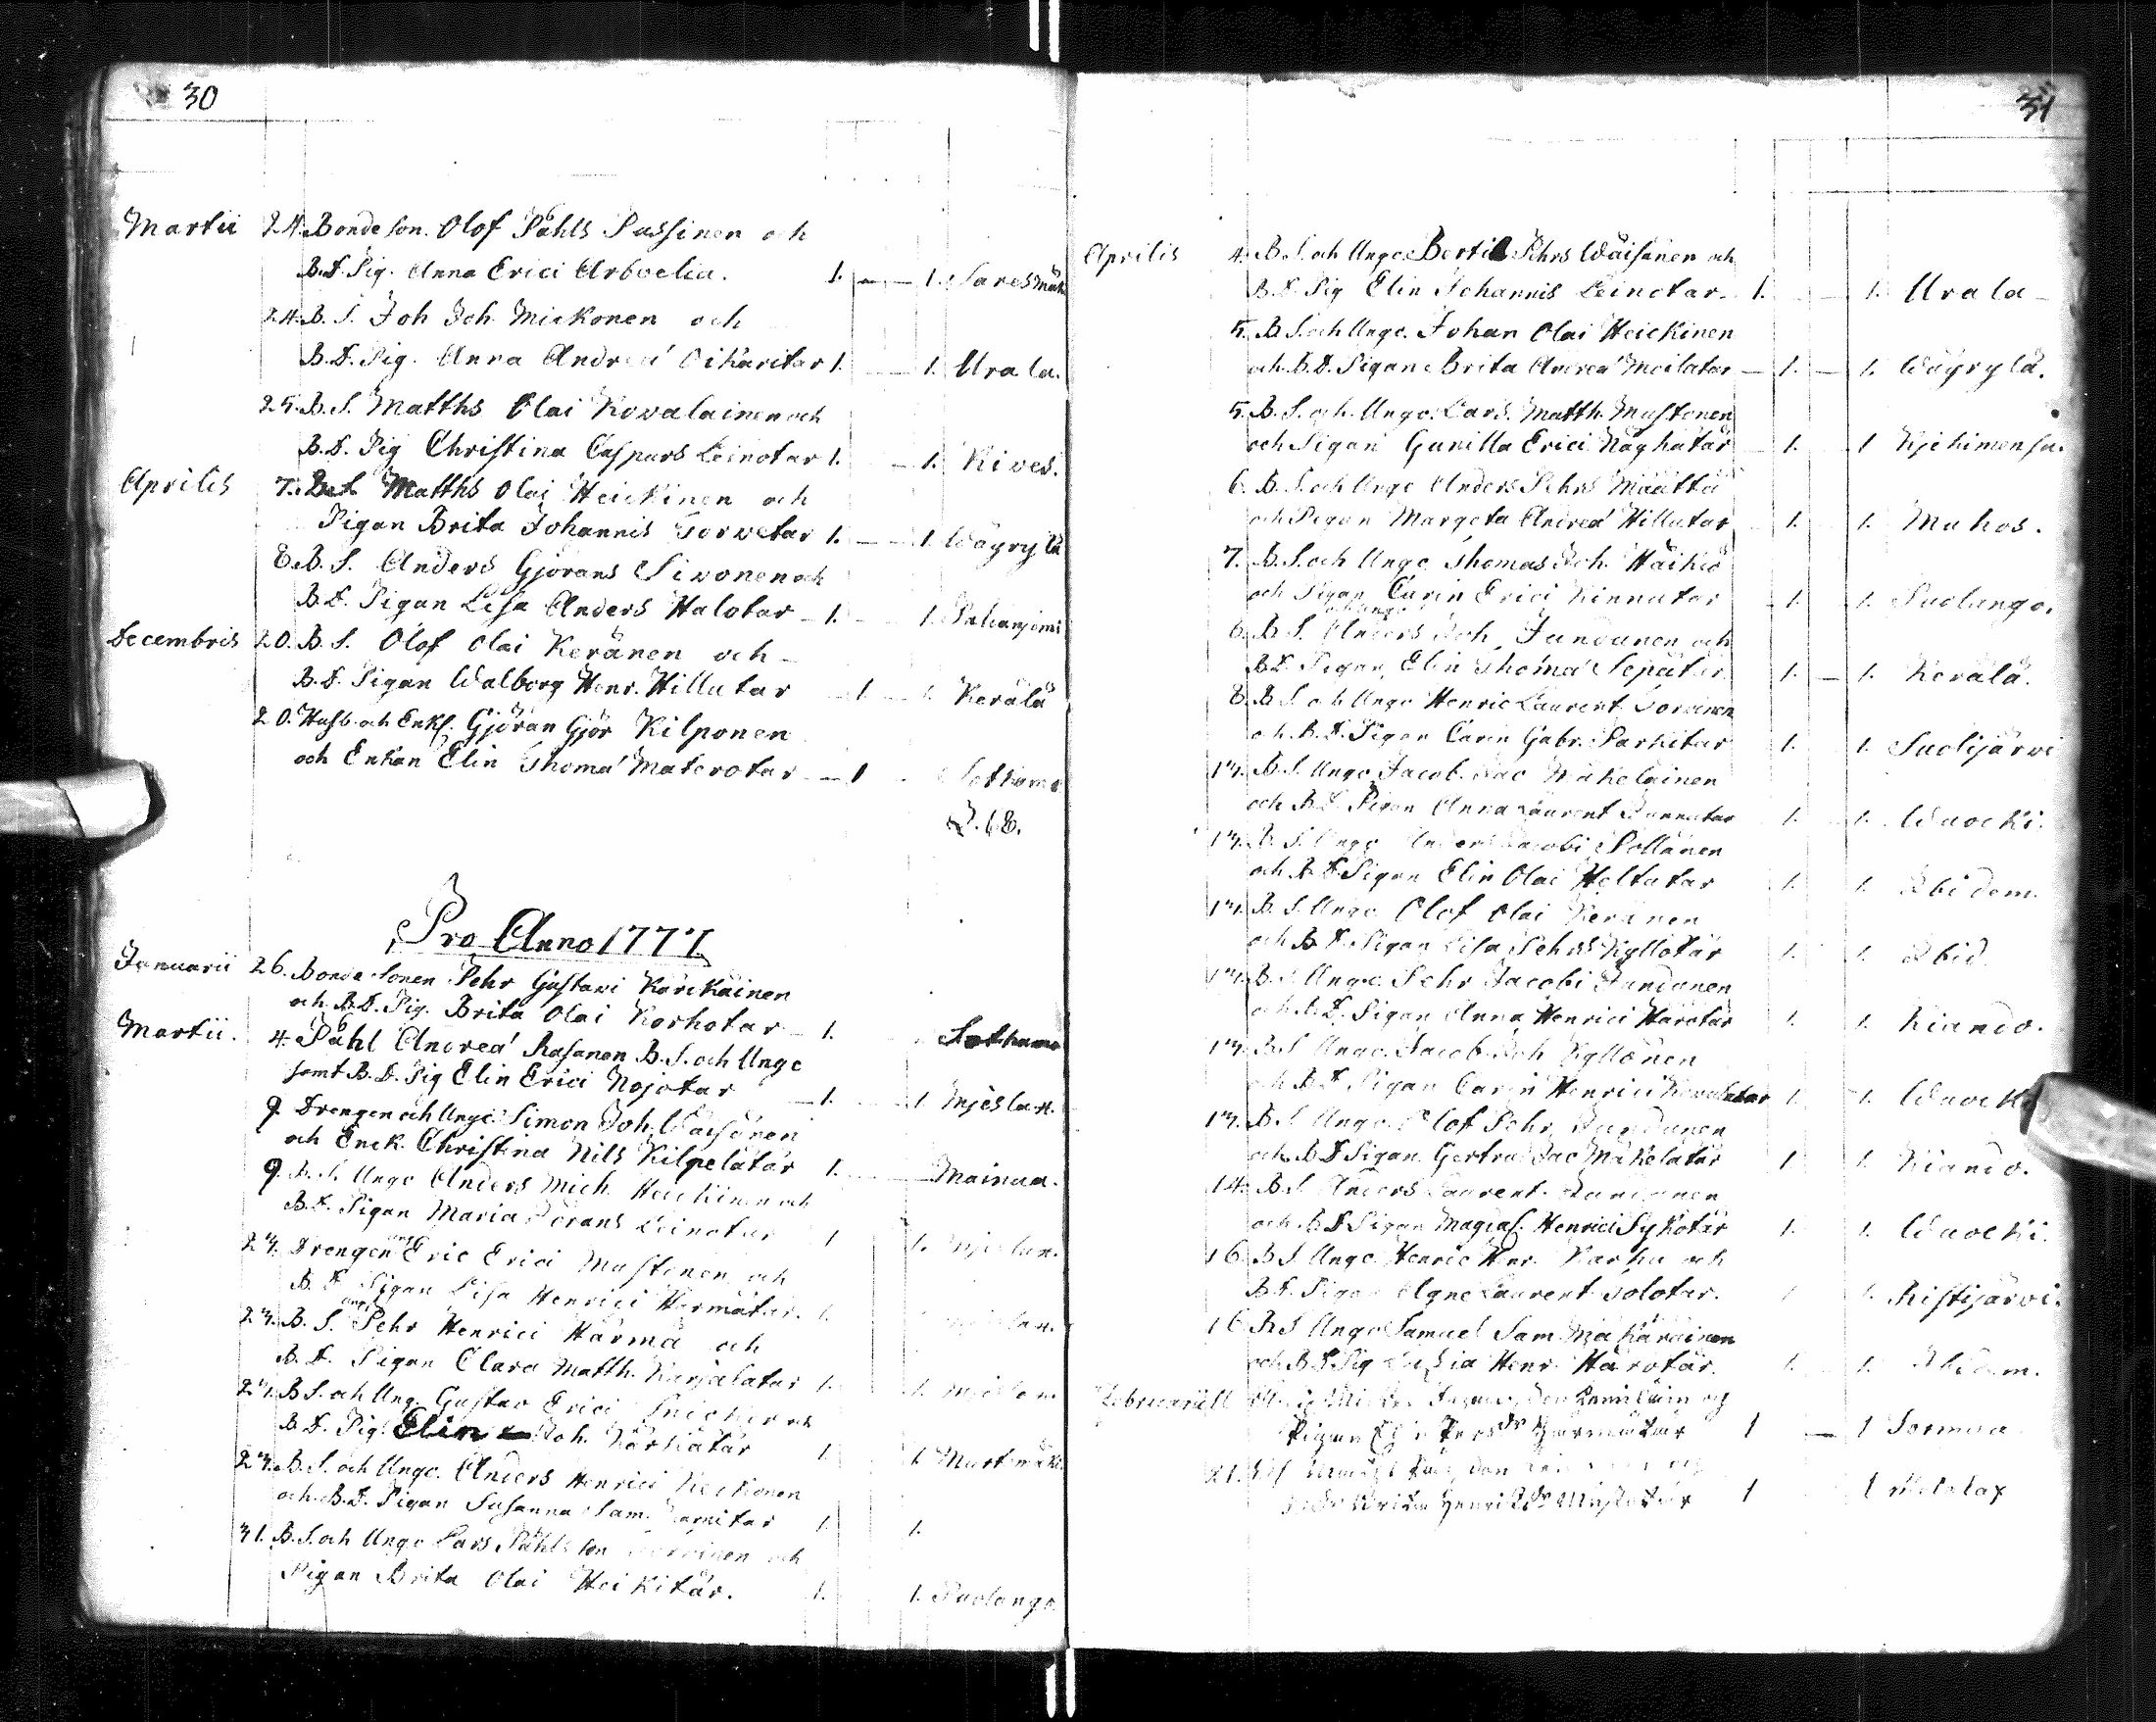 30
Martii 24. Bondeson. Olof Påhls Passinen och
B.D. Pig. Anna Erici Arbvelia. 1. — 1. Saresmäk
24. B. S. Joh Joh. Mickonen och
B.D. Pig. Anna Andreæ Oikaritar 1. — 1. Urala.
25. B. S. Matths Olai Kovalainen och
B.D. Pig Christina Caspars Leinotar 1. — 1. Kives.
Aprilis 7. B.S. Matths Olai Heickinen och
Pigan Brita Johannis Torvetar 1. — 1. Wäyrylä
8. B. S. Anders Gjörans Sivonen och
B.D. Pigan Lisa Anders Halotar — 1. — 1. Pahanjemi
Decembris 20. B. S. Olof Olai Keränen och
B.D. Pigan Walborg Henr. Hillutar — 1 — 1. Kerälä
20. Husb. och Enkl. Gjöran Gjör Kilponen
och Enkan Elin Thomæ Materotar — 1 Sotkamo
S. 68.
Pro Anno 1777.
Januarii 26. Bonde Sonen Pehr Gustavi Karickainen
och B.D. Pig. Brita Olai Korhotar — 1. Sotkamo
Martii. 4. Påhl Andreæ Rasanen B. S. och Unge
samt B.D. Pig Elin Erici Nojotar — 1. — 1. Mjeslax.
9. Drengen och Unge Simon Joh. Waisänen
och Enck. Christina Nils Kilpelatär 1. — Mainua.
9. B. S. Unge Anders Mich. Heickinen och
B.D. Pigan Maria Jörans Leinotar 1 1. Mjeslax.
23. Drengen Unge Eric Erici Mustonen och
B. D Pigan Lisa Henrici Harmätar. 1.
23. B. S. Unge Pehr Henrici Härmä och
B. D. Pigan Clara Matth. Karjalatar 1. 1. Mjeslax.
23. B S. och Ung. Gustav Erici Snicker och
B D. Pig. Elin Joh. Karhatar 1. 1. Murtomäki
23. B. S. och Unge. Anders Henrici Keckonen
och B.D. Pigan Susanna Sam. 1. 1.
31. B. S. och Unge Lars Påhls son och
Pigan Brita Olai Heikitär. 1. 1. Puolango.
31
Aprilis 4. B. S. och Unge. Bertil Pehrs Wäisänen och
B D. Pig Elin Johannis Leinotar. 1. — 1. Urala
5. B S. och Unge. Johan Olai Heickinen
och. B.D. Pigan Brita Andreæ Moilatar — 1. — 1. Wäyrylä.
5. B. S. och. Unge. Lars. Matth. Mustonen
och Pigan Gunilla Erici Någhatar 1. — 1 Kjehimensu.
6. B. S. och Unge Anders Pehrs Määttä
och Pigan Margeta Andreæ Hillutar 1. — 1. Muhos.
7. B. S. och Unge Thomas Joh. Häikiö
och Pigan Carin Erici Kinnutar 1. 1. Puolango.
6. B. S. och unge Anders Joh. Jundunen och
B D. Pigan, Elin Thomæ Sepätar 1. — 1. Kerälä.
8. B S. och Unge Henric Laurent. Torvinen
och B. D. Pigan Carin Gabr. Parkitar 1. 1. Suolijärvi
13. B. S. Unge Jacob. Jac Mäkeläinen
och B.D. Pigan Anna Laurent 1. 1. Wuocki.
13. B. S. Unge Anders Jacobi Pöllänen
och B D Pigan Elin Olai Heltutar 1. 1. Ibidem.
13. B. S. Unge. Olof Olai Keränen
och B D. Pigan Lisa Pehrs Kyllötär 1. 1. Ibid.
13. B. S Unge. Pehr Jacobi Jundunen
och B D. Pigan Anna Henrici Härötär 1. 1. Kiando.
13. B S Unge. Jacob. Joh Kyllönen
och B D Pigan Carin Henrici Kovalatar 1. 1. Wuocki
13. B. S Unge. Olof Pehr Jundunen
och B D Pigan. Gertru Jac Mäkelätär 1. 1. Kiando.
14. B. S Anders Laurent. Jundunen
och B D Pigan Magdal. Henrici Sykötär 1. 1. Wuocki.
16. B S Unge. Henric Henr. Karhu och
B D. Pigan Agne Laurent Tolotar. 1. 1. Ristijärvi.
16. B S Unge Samuel Sam Mäkäräinen
och B D Pig Henr. Härötär. 1. 1. Ibidem.
Februarii
Pigan Härmätär 1 — 1 Sormua
21.
Brita Henrics dr Mustotar 1 1 Melalax